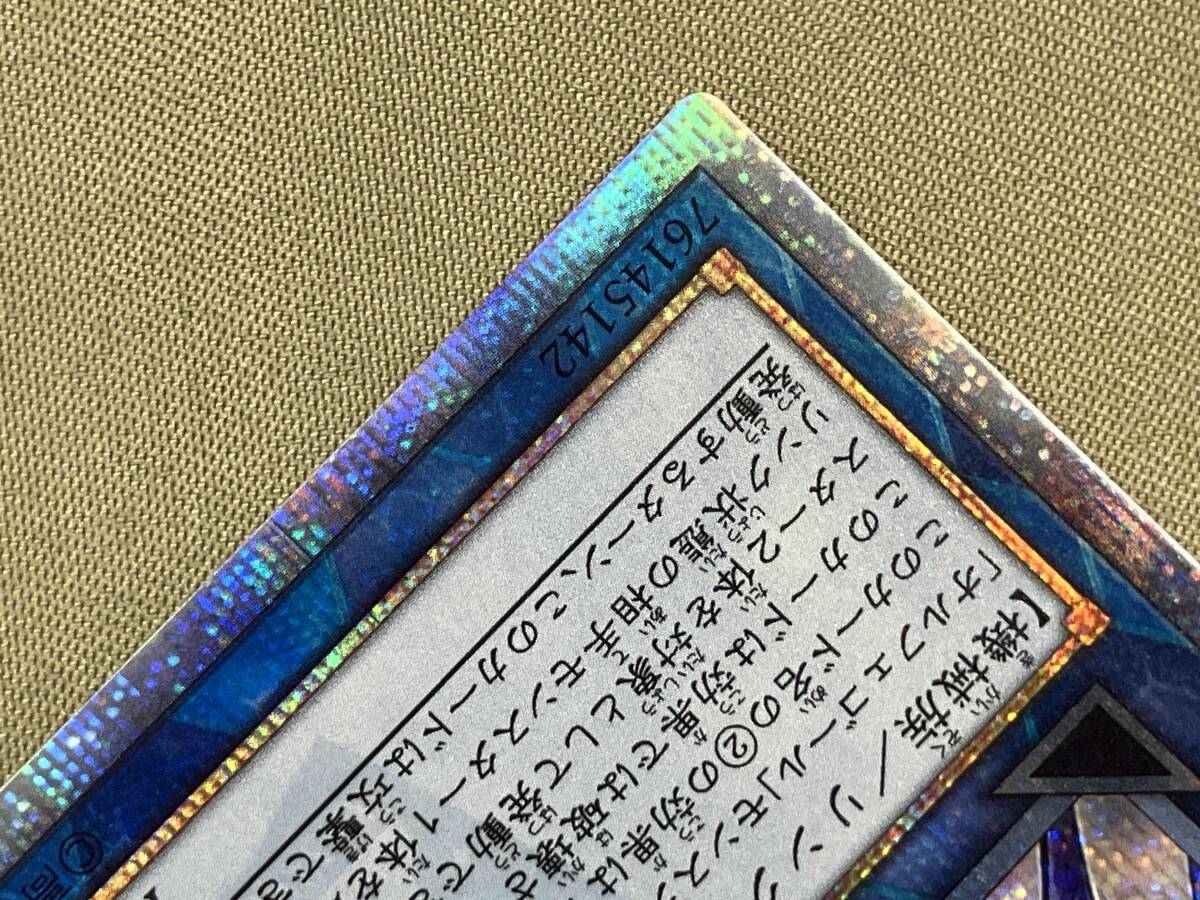 76145142
【機械族/リンク
「オルフェゴール」モンス
このカード名の②の効果は
このカードは効果では破壊
スター2体を対象として発動で
ンク状態の相手モンスター1体を
発動するターン、このカードは攻撃でき
©高